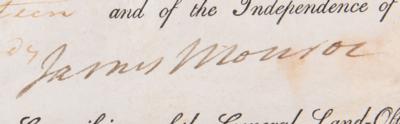 teen and of the Independence of
By James Monroe
General Land-Off